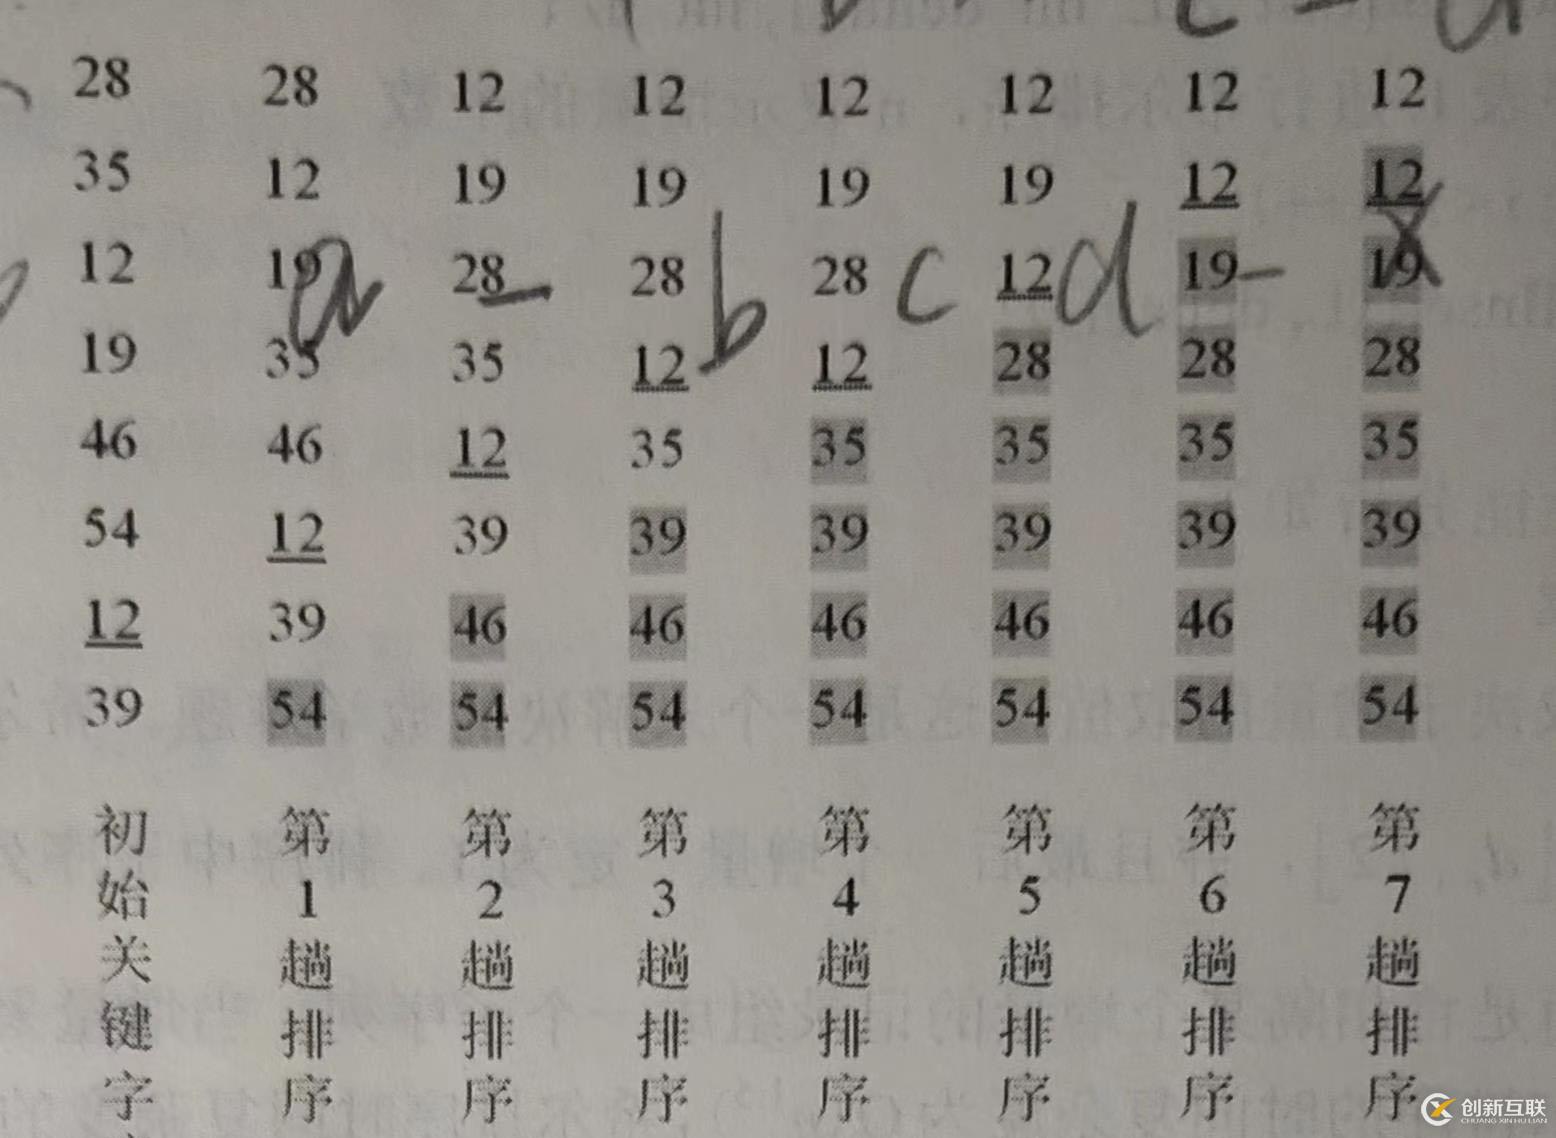 28 28 12 12 12 12 12 12
35 12 19 19 19 19 12 12
12 19 28 28 28 12 19 19
19 35 35 12 12 28 28 28
46 46 12 35 35 35 35 35
54 12 39 39 39 39 39 39
12 39 46 46 46 46 46 46
39 54 54 54 54 54 54 54
a - b c d - x
初 第 第 第 第 第 第 第
始 1 2 3 4 5 6 7
关 趟 趟 趟 趟 趟 趟 趟
键 排 排 排 排 排 排 排
字 序 序 序 序 序 序 序
创新互联
CHUANG XIN HU LIAN